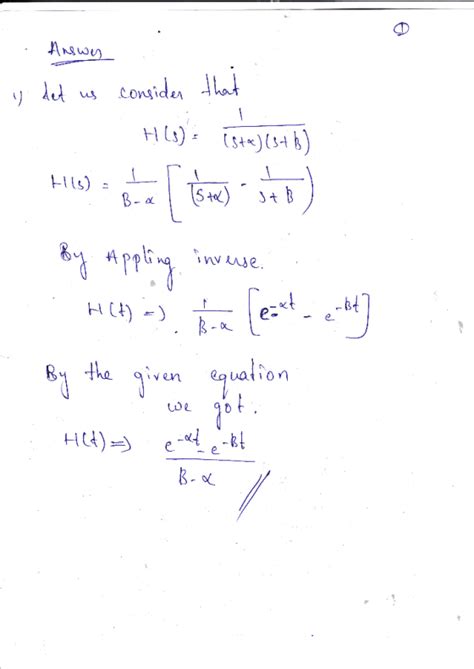 ①
Answer
1) Let us consider that
H(s) = 1/((s+α)(s+B))
H(s) = 1/(B-α) [ 1/(s+α) - 1/(s+B) )
By Appling inverse.
H(t) => . 1/(B-α) [e^-αt - e^-Bt]
By the given equation
we got.
H(t) => (e^-αt - e^-Bt)/(B-α) //